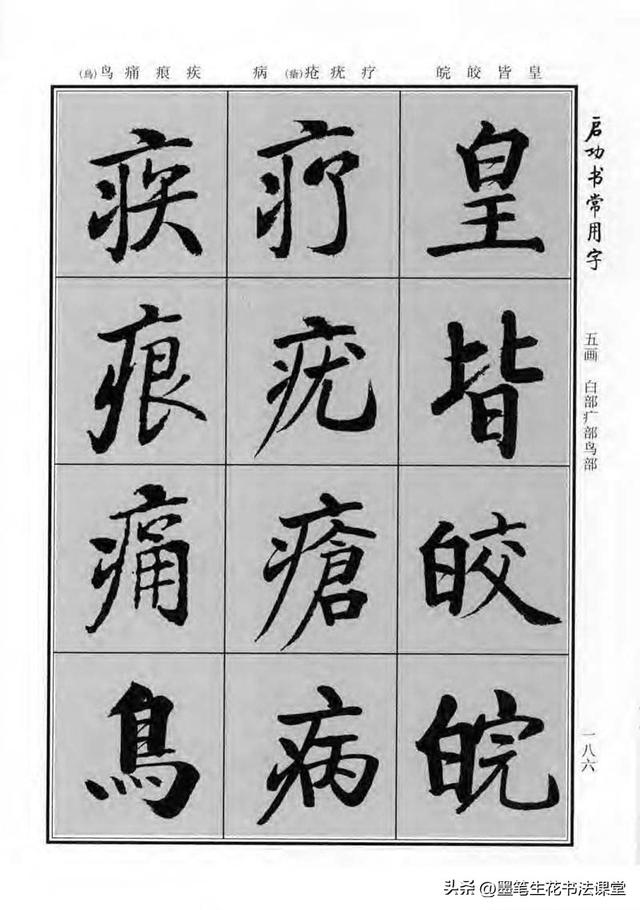 皇皆皎皖
疗疣疮(瘡)病
疾痕痛鸟(鳥)
启功书常用字
五画 白部疒部鸟部
一八六
皇
皆
皎
皖
疗
疣
瘡
病
疾
痕
痛
鳥
头条 @墨笔生花书法课堂